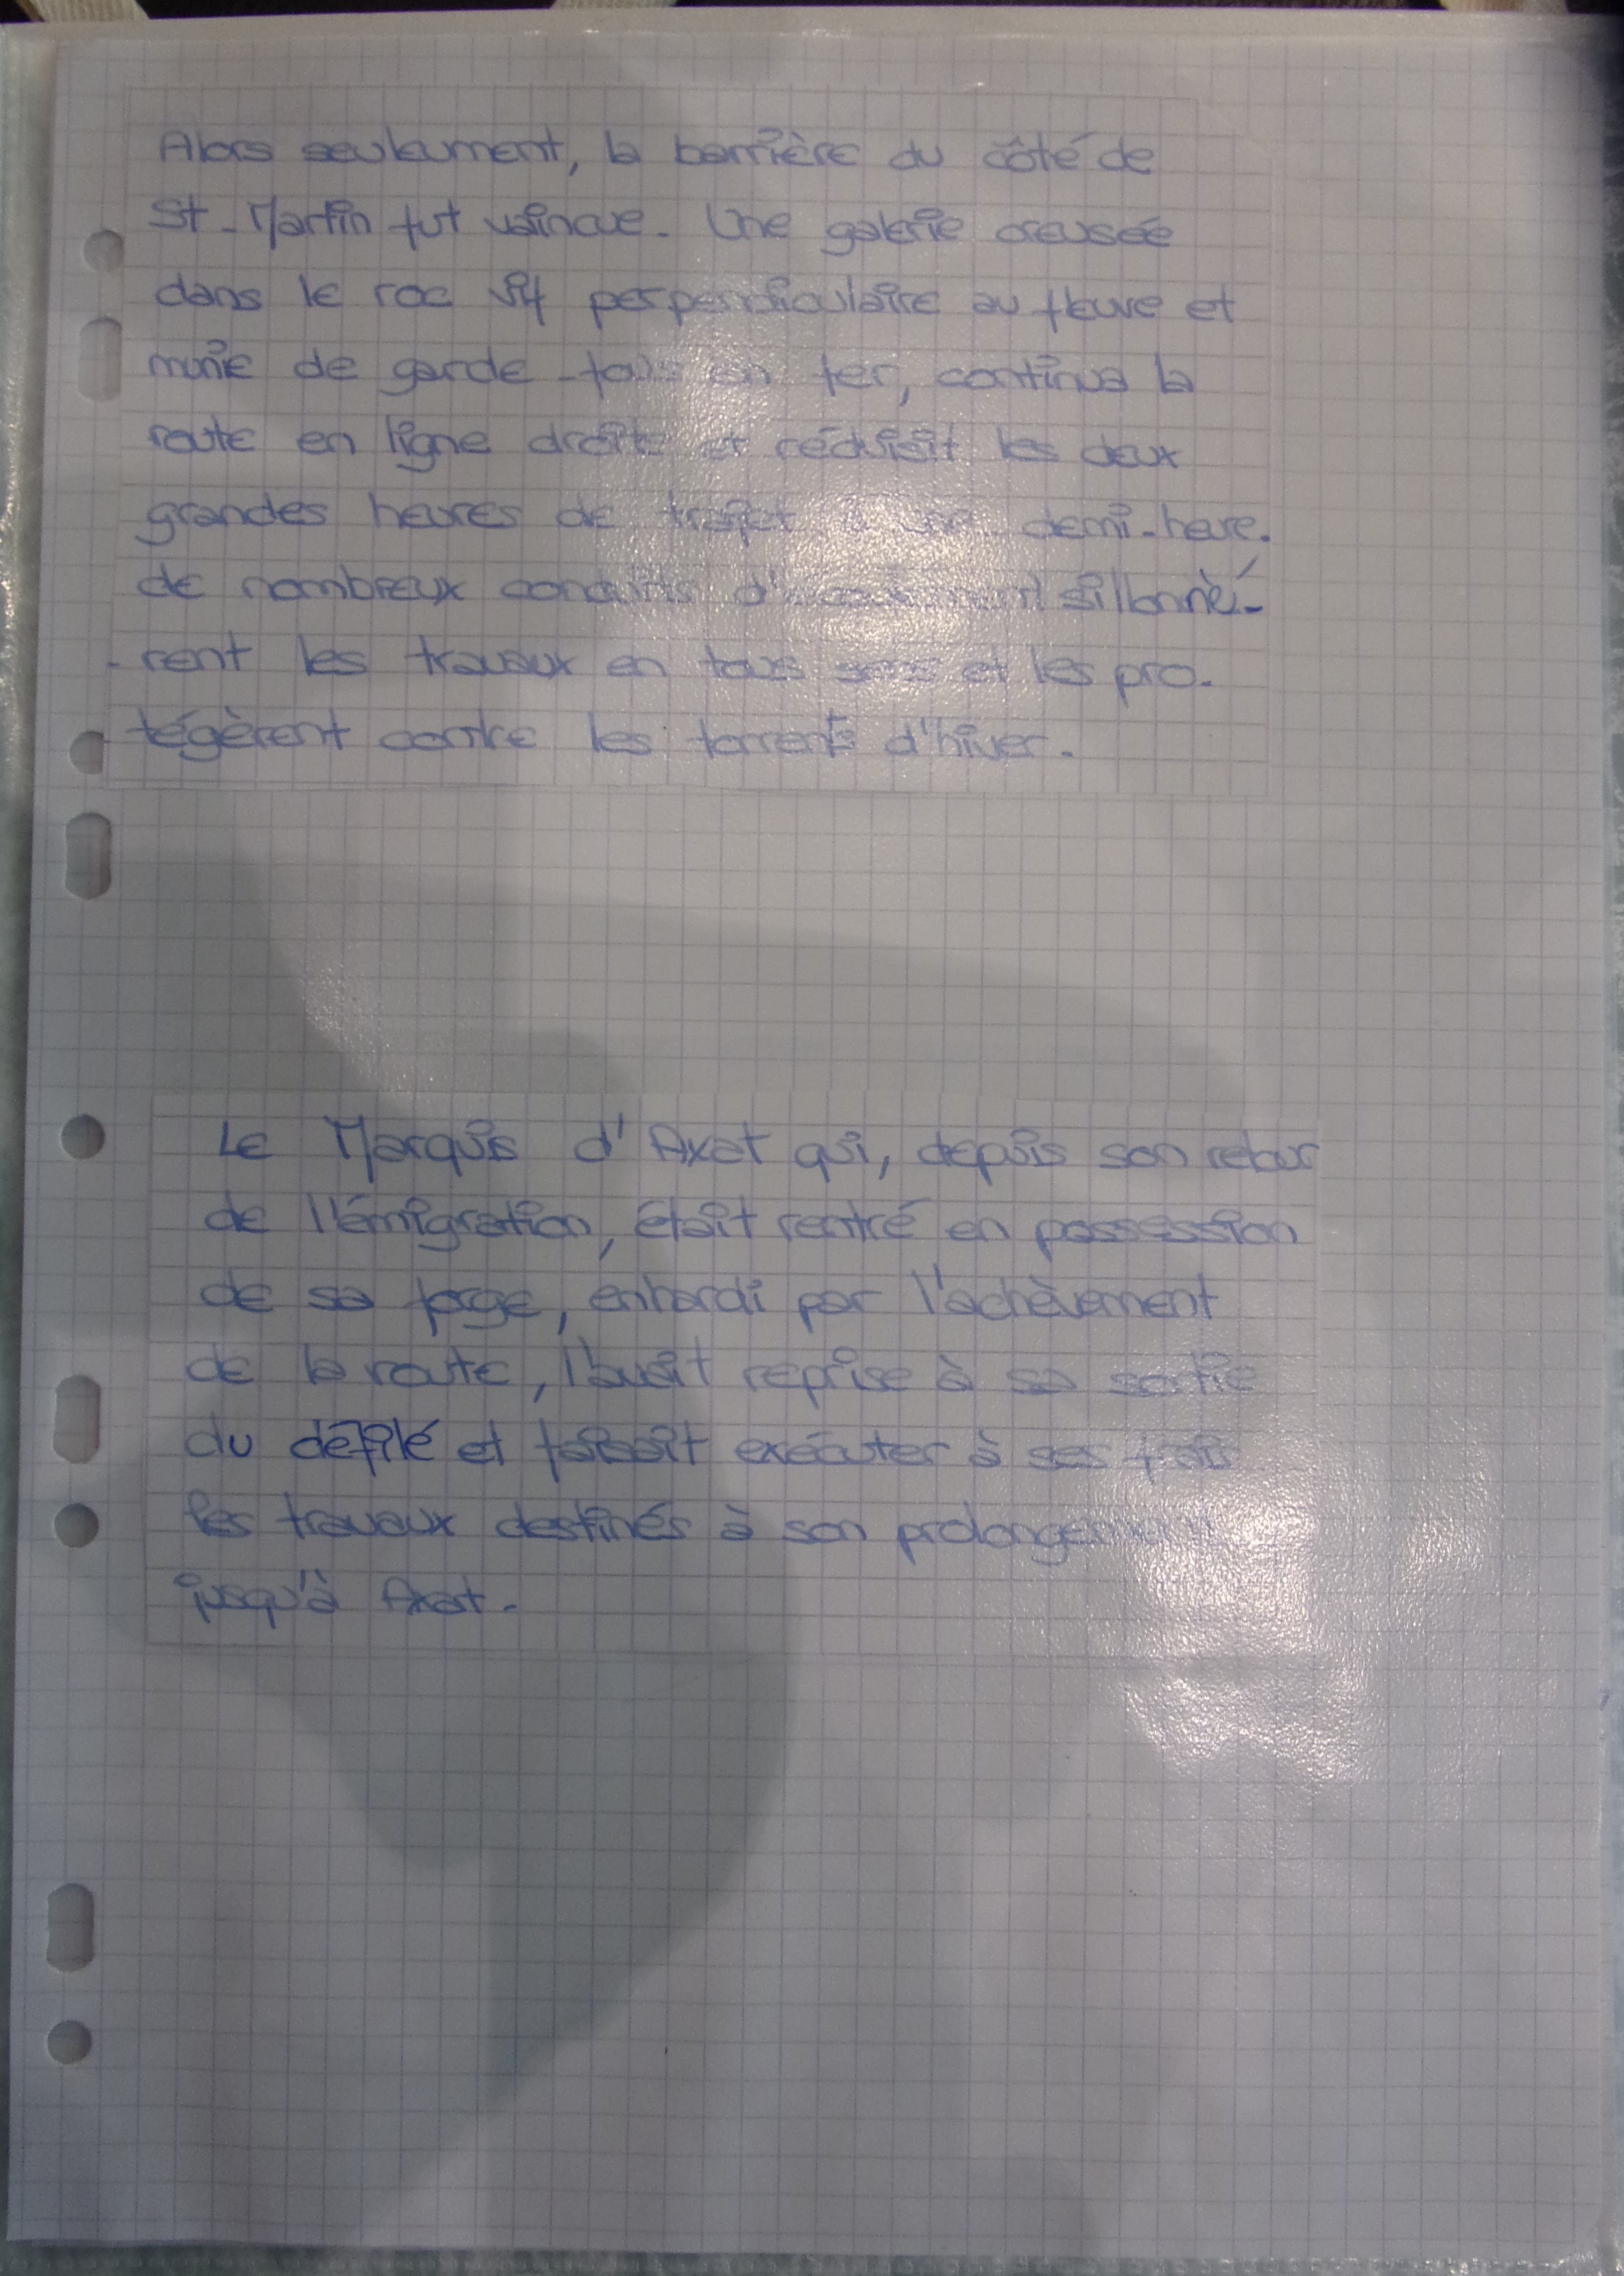 Alors seulement, la barrière du côté de
St-Martin fut vaincue. Une galerie creusée
dans le roc vif perpendiculaire au fleuve et
munie de garde-fous en fer, continua la
route en ligne droite et réduisit les deux
grandes heures de trajet à une demi-heure.
de nombreux conduits sillonnè-
-rent les travaux en tous sens et les pro-
tégèrent contre les torrents d'hiver.
Le Marquis d'Axat qui, depuis son retour
de l'émigration, était rentré en possession
de sa forge, enhardi par l'achèvement
de la route, l'avait reprise à sa sortie
du défilé et faisait exécuter à ses frais
les travaux destinés à son prolongement
jusqu'à Axat.